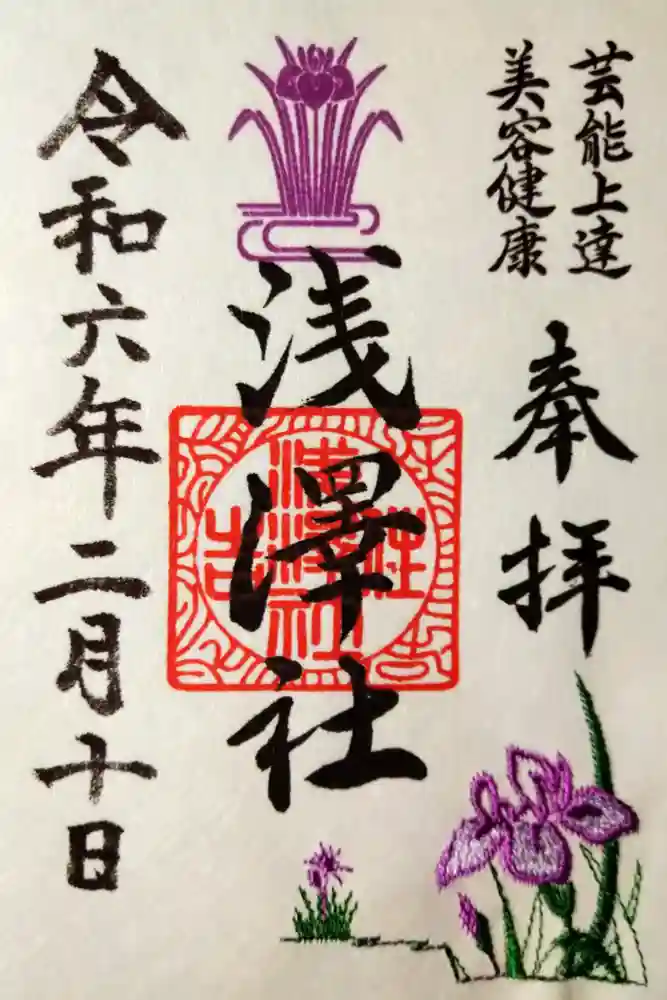 芸能上達
美容健康
奉拝
浅澤社
住吉
浅澤社
令和六年二月十日